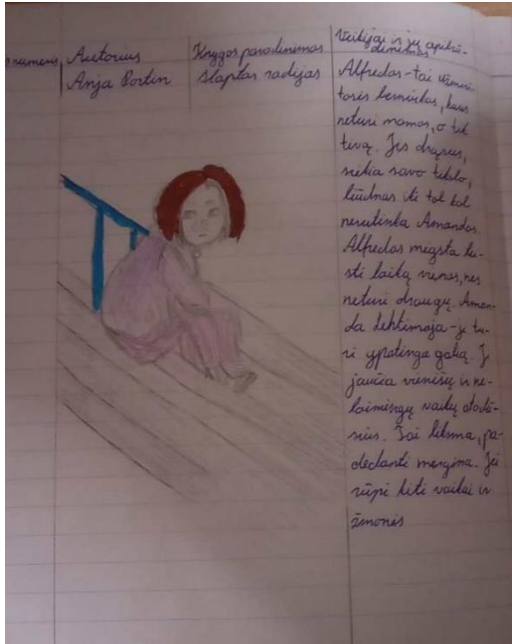 numeris
Autorius
Anja Portin
Knygos pavadinimas
slaptas radijas
Veikėjai ir jų apibū-
dinimas
Alfredas-tai
berniukas, kuris
neturi mamos, o tik
tėvą. Jis drąsus,
siekia savo tikslo,
liūdnas iki tol kol
nesutinka Amandos.
Alfredas mėgsta lei-
sti laiką vienas, nes
neturi draugų. Aman-
da Lehtimaja-ji tu-
ri ypatingą galią. Ji
jaučia vienišų ir ne-
laimingų vaikų atodū-
sius. Tai linksma, pa-
dedanti mergina. Jei
rūpi kiti vaikai ir
žmonės